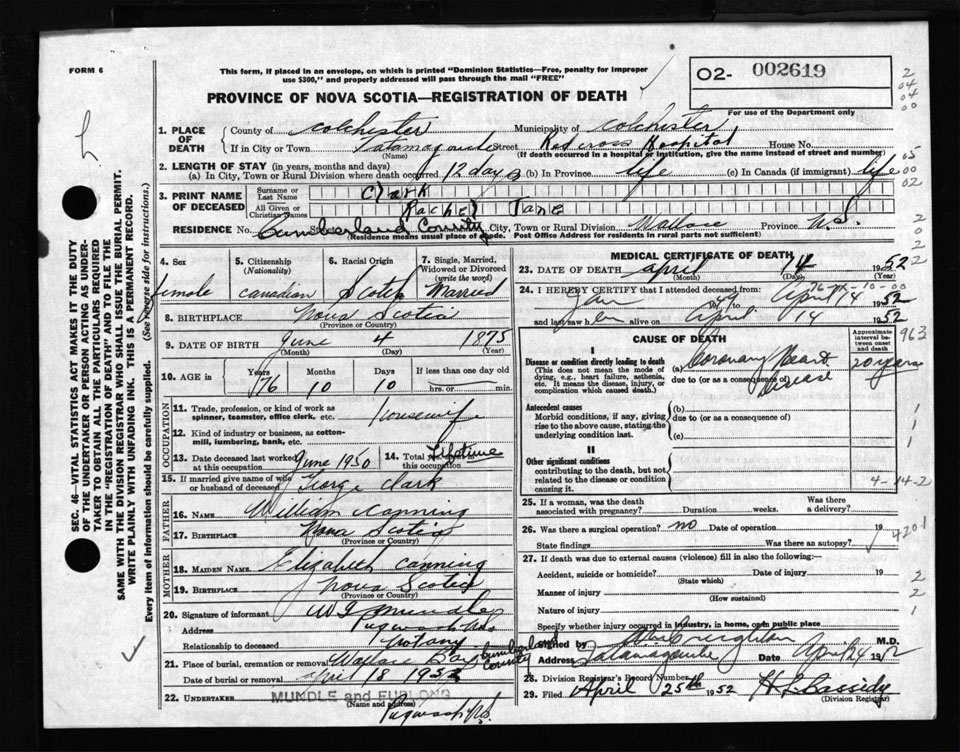 FORM 6
This form, if placed in an envelope, on which is printed "Dominion Statistics—Free, penalty for improper
use $300," and properly addressed will pass through the mail "FREE"
PROVINCE OF NOVA SCOTIA—REGISTRATION OF DEATH
02- 002619
For use of the Department only
1. PLACE OF DEATH { County of Colchester Municipality of Colchester
If in City or Town Tatamagouche (Name) Street Red Cross Hospital House No.
(If death occurred in a hospital or institution, give the name instead of street and number)
2. LENGTH OF STAY (in years, months and days)
(a) In City, Town or Rural Division where death occurred 12 days (b) In Province life (c) In Canada (if immigrant) life
3. PRINT NAME OF DECEASED { Surname or Last Name Clark
All Given or Christian Names Rachel Jane
RESIDENCE No. Cumberland County City, Town or Rural Division Wallace Province N.S.
(Residence means usual place of abode. Post Office Address for residents in rural parts not sufficient)
4. Sex female
5. Citizenship (Nationality) Canadian
6. Racial Origin Scotch
7. Single, Married, Widowed or Divorced (write the word) Married
8. BIRTHPLACE Nova Scotia
(Province or Country)
9. DATE OF BIRTH June 4 1875
(Month) (Day) (Year)
10. AGE in Years 76 Months 10 Days 10 If less than one day old hrs. or min.
OCCUPATION
11. Trade, profession, or kind of work as spinner, teamster, office clerk, etc. Housewife
12. Kind of industry or business, as cotton-mill, lumbering, bank, etc.
13. Date deceased last worked at this occupation June 1950 14. Total this occupation Lifetime
15. If married give name of wife or husband of deceased George Clark
FATHER
16. NAME William Canning
17. BIRTHPLACE Nova Scotia
(Province or Country)
MOTHER
18. MAIDEN NAME Elizabeth Canning
19. BIRTHPLACE Nova Scotia
(Province or Country)
20. Signature of informant Mundle
Address Pugwash N.S.
Relationship to deceased notary
21. Place of burial, cremation or removal Wallace Bay Cumberland County
Date of burial or removal April 18 1952
22. UNDERTAKER MUNDLE and FURLONG
(Name and address)
Pugwash N.S.
MEDICAL CERTIFICATE OF DEATH
23. DATE OF DEATH April 14 1952
(Month) (Day) (Year)
24. I HEREBY CERTIFY that I attended deceased from
Jan 1949 to April 14 1952
76-X-10-00
and last saw her alive on April 14 1952
CAUSE OF DEATH
Approximate interval between onset and death
963
I
Disease or condition directly leading to death
(This does not mean the mode of dying, e.g., heart failure, asthenia, etc. It means the disease, injury, or complication which caused death.)
(a) Coronary Heart Disease 20 years
due to (or as a consequence of)
Antecedent causes
Morbid conditions, if any, giving rise to the above cause, stating the underlying condition last.
(b)
due to (or as a consequence of)
(c)
II
Other significant conditions
contributing to the death, but not related to the disease or condition causing it.
4-14-2
25. If a woman, was the death associated with pregnancy? Duration weeks. Was there a delivery?
26. Was there surgical operation? no Date of operation 19
State findings Was there an autopsy?
4201
27. If death was due to external causes (violence) fill in also the following:—
Accident, suicide or homicide? Date of injury 19
(State which)
Manner of injury
(How sustained)
Nature of injury
Specify whether injury occurred in industry, in home, or in public place
Signed by Creighton M.D.
Address Tatamagouche Date April 24 1952
28. Division Registrar's Record Number
29. Filed April 25th 1952 H L Cassidy
(Division Registrar)
SEC. 46—VITAL STATISTICS ACT MAKES IT THE DUTY
OF THE UNDERTAKER OR PERSON ACTING AS UNDER-
TAKER TO OBTAIN ALL THE PARTICULARS REQUIRED
IN THE "REGISTRATION OF DEATH" AND TO FILE THE
SAME WITH THE DIVISION REGISTRAR WHO SHALL ISSUE THE BURIAL PERMIT.
WRITE PLAINLY WITH UNFADING INK. THIS IS A PERMANENT RECORD.
Every item of information should be carefully supplied. (See reverse side for instructions.)